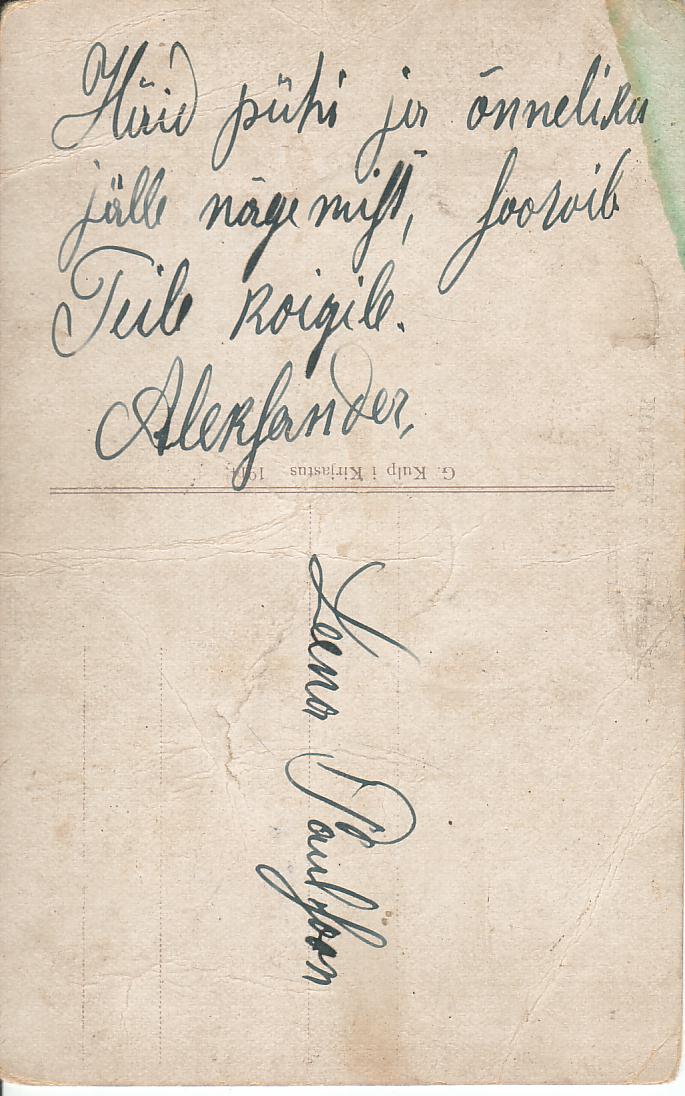 Häid pühi ja õnneliku
jälle nägemist, soovib
Teile koigile.
Aleksander,
G. Kulp i Kirjastus
Leena Paulson